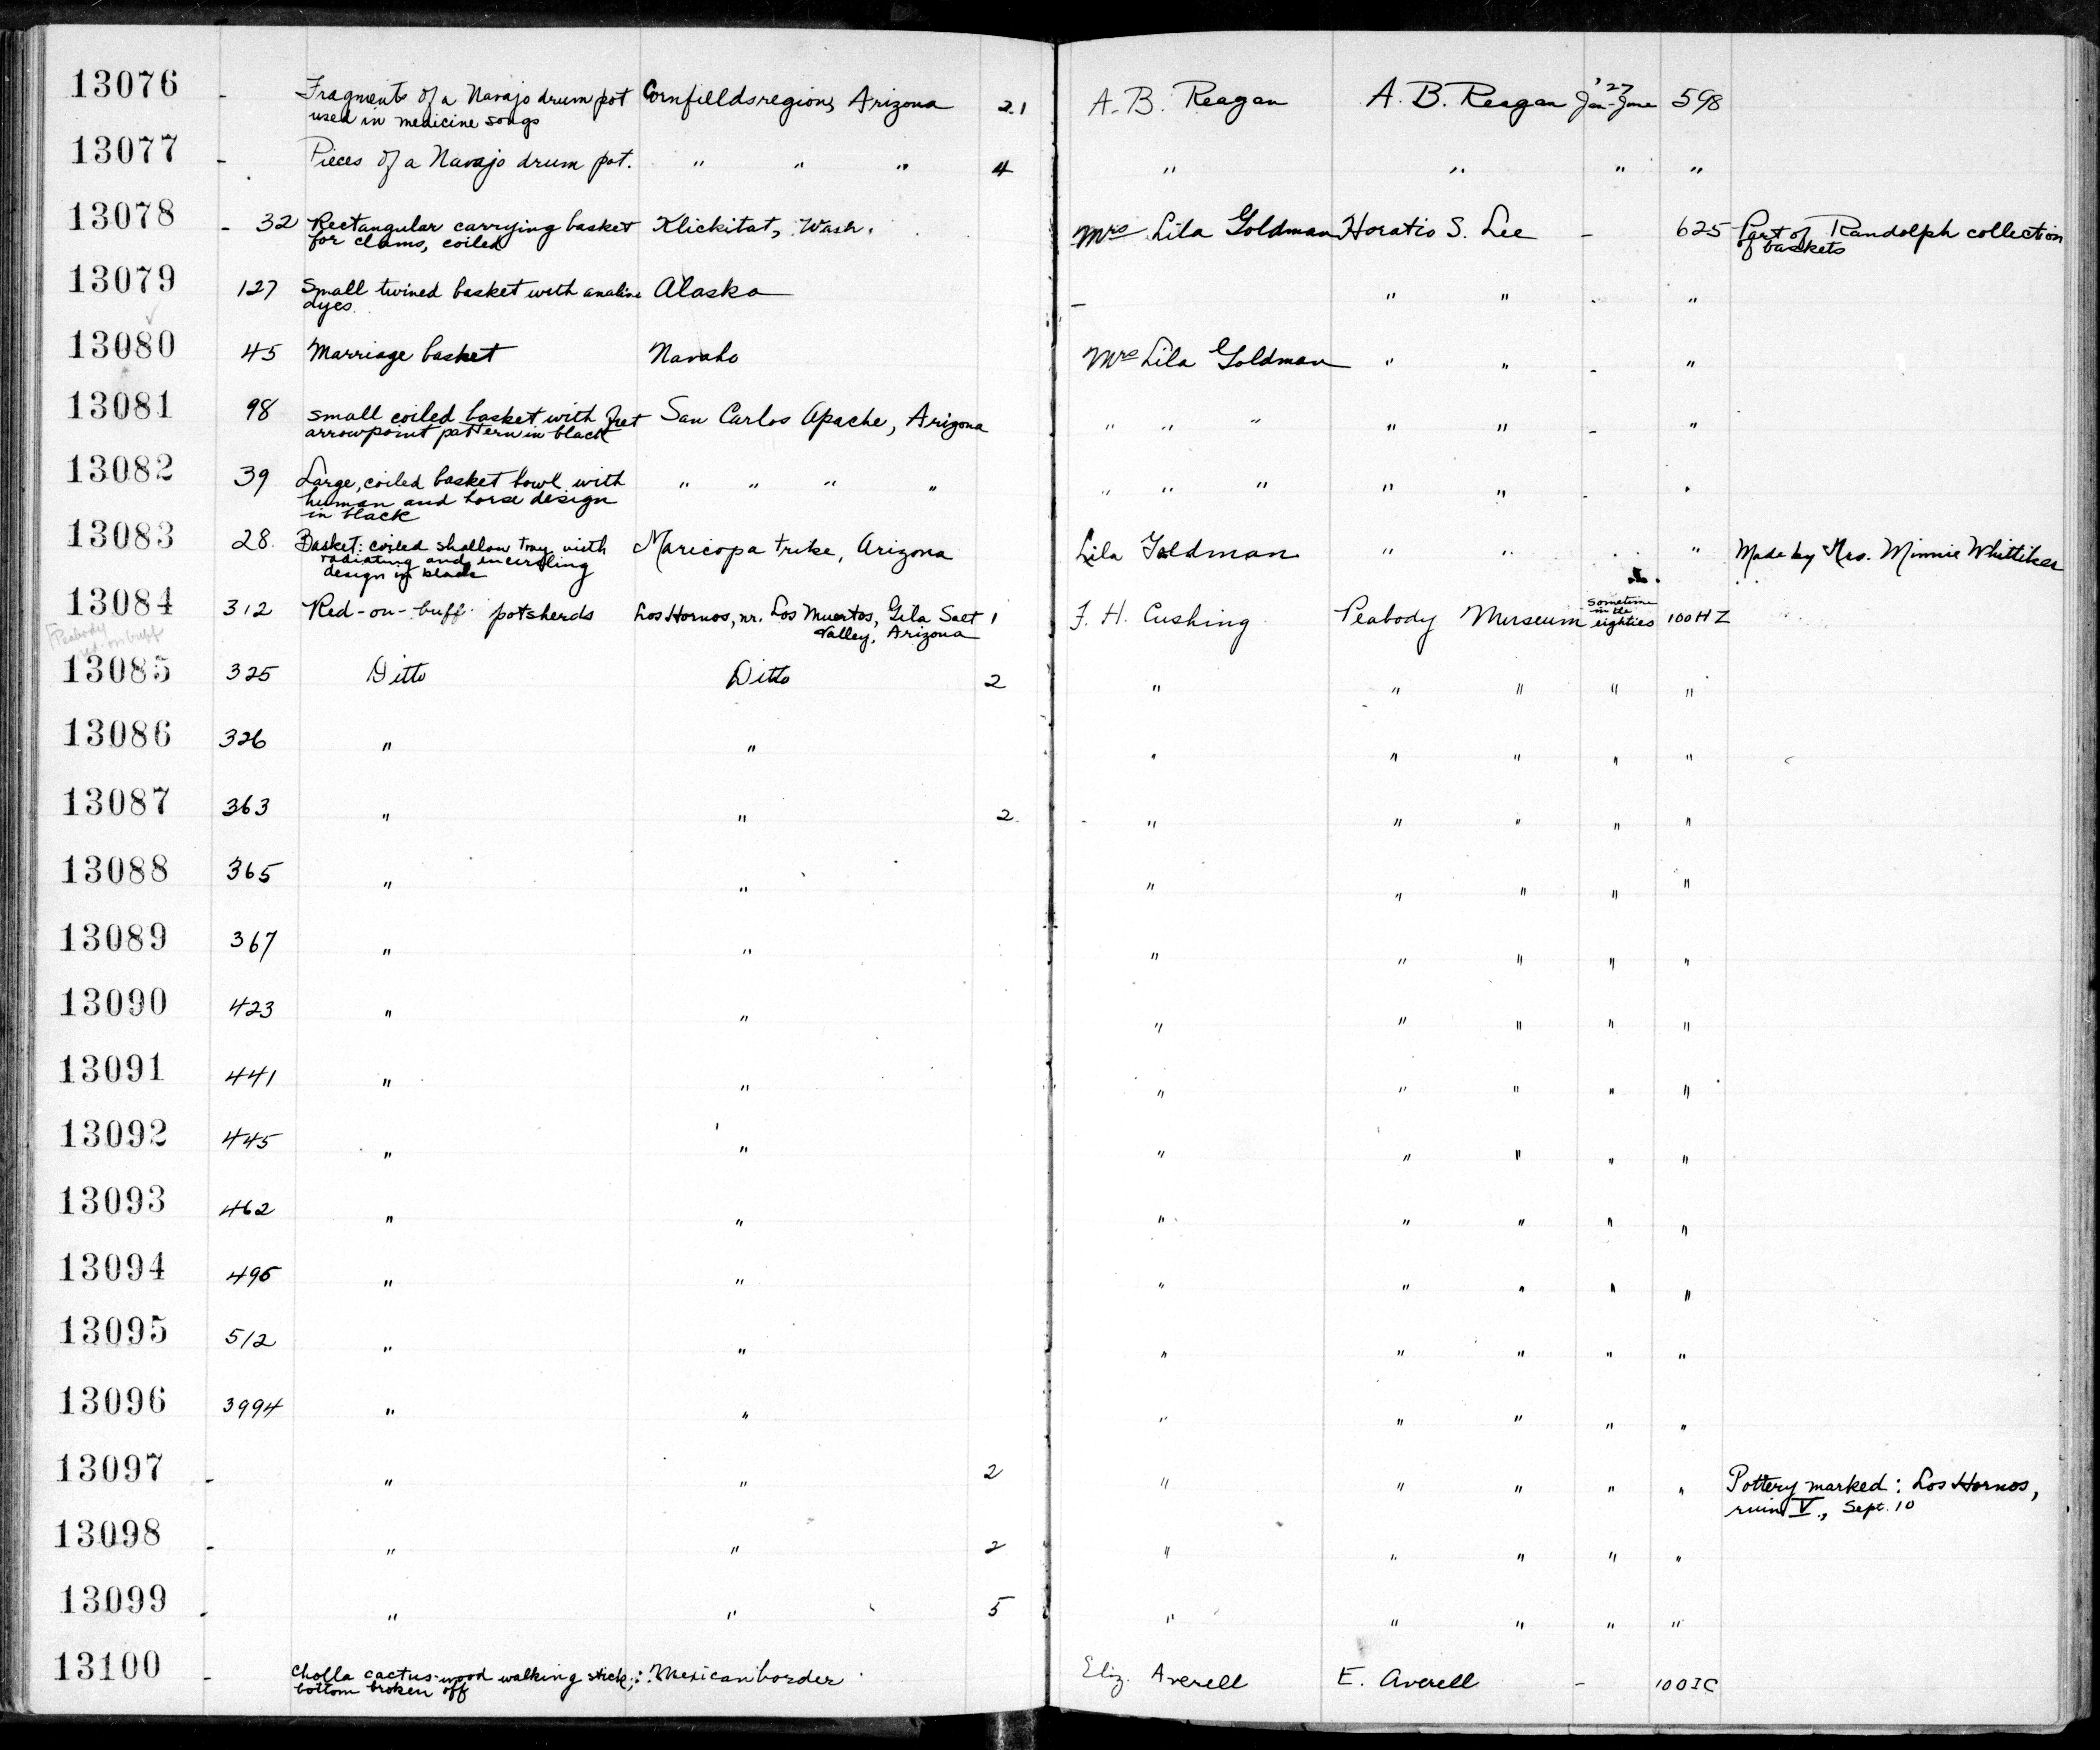 13076 - Fragments of a Navajo drum pot Cornfields region, Arizona 21 A. B. Reagan A. B. Reagan '27 Jan-June 598
used in medicine songs
13077 - Pieces of a Navajo drum pot. " " " 4 " " " "
13078 - 32 Rectangular carrying basket Klickitat, Wash. Mrs Lila Goldman Horatio S. Lee - 625 Part of Randolph collection
for clams, coiled of baskets
13079 127 Small twined basket with analine Alaska - " " - "
dyes
13080 45 Marriage basket Navaho Mrs Lila Goldman " " - "
13081 98 small coiled basket with fret San Carlos Apache, Arizona " " " " " - "
arrowpoint pattern in black
13082 39 Large, coiled basket bowl with " " " " " " " " " - "
human and horse design
in black
13083 28 Basket: coiled shallow tray with Maricopa tribe, Arizona Lila Goldman " " " Made by Mrs. Minnie Whittiker
radiating and encircling
design in black
13084 312 Red-on-buff potsherds Los Hornos, nr. Los Muertos, Gila Salt 1 F. H. Cushing Peabody Museum sometime in the eighties 100HZ
Valley, Arizona
Peabody
red-on-buff
13085 325 Ditto Ditto 2 " " " " "
13086 326 " " " " " " "
13087 363 " " 2 " " " " "
13088 365 " " " " " " "
13089 367 " " " " " " "
13090 423 " " " " " " "
13091 441 " " " " " " "
13092 445 " " " " " " "
13093 462 " " " " " " "
13094 495 " " " " " " "
13095 512 " " " " " " "
13096 3994 " " " " " " "
13097 - " " 2 " " " " " Pottery marked: Los Hornos,
ruin V., Sept. 10
13098 - " " 2 " " " " "
13099 - " " 5 " " " " "
13100 - Cholla cactus-wood walking stick; Mexican border Eliz. Averell E. Averell - 100IC
bottom broken off